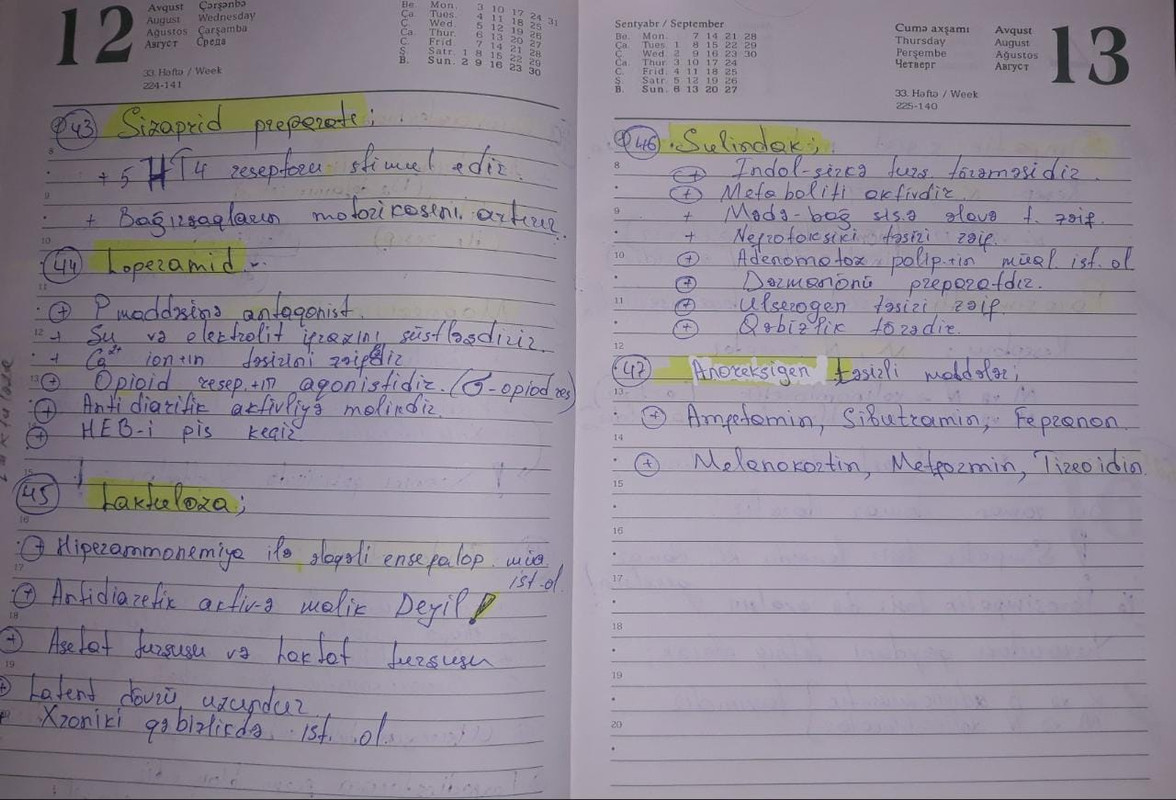 12
Avqust Çərşənbə
August Wednesday
Ağustos Çarşamba
Август Среда
33. Həftə / Week
224-141
Be. Mon. 3 10 17 24 31
Ça. Tues. 4 11 18 25
Ç. Wed. 5 12 19 26
Ca. Thur. 6 13 20 27
C. Frid. 7 14 21 28
Ş. Satr. 1 8 15 22 29
B. Sun. 2 9 16 23 30
43 Sizaprid preparatı;
+ 5 HT4 reseptoru stimul edir.
+ Bağırsaqların motorikasını artırır.
44 Loperamid
+ P maddəsinə antagonist.
+ Su və elektrolit ifrazını süstləşdirir.
+ Ca2+ ion+ın təsirini zəiflədir
+ Opioid resep.+ın agonistidir. (σ-opiod res)
+ Antidiarifik aktivliyə malikdir.
+ HEB-i pis keçir
45 Laktuloza;
+ Hiperammonemiya ilə əlaqəli ensefalop. müa
ist.ol.
+ Antidiaretik aktiv-ə malik Deyil!
+ Asetat turşusu və Laktat turşusu
+ Latent dövrü uzundur
Xroniki qəbizlikdə ist. ol.
Sentyabr / September
Be. Mon. 7 14 21 28
Ça. Tues. 1 8 15 22 29
Ç. Wed. 2 9 16 23 30
Ca. Thur. 3 10 17 24
C. Frid. 4 11 18 25
Ş. Satr. 5 12 19 26
B. Sun. 6 13 20 27
Cümə axşamı Avqust
Thursday August
Perşembe Ağustos
Четверг Август
33. Həftə / Week
225-140
13
46 Sulindak;
+ İndol-sirkə turş törəməsidir.
+ Metaboliti aktivdir.
+ Mədə-bağ sis.ə əlavə t. zəif.
+ Nefrotoksiki təsiri zəif.
+ Adenomatoz polip+ın müal. ist. ol
+ Dərmanönü preparatdır.
+ Ulserogen təsiri zəif.
+ Qəbizlik törədir.
47 Anoreksigen təsirli maddələr;
+ Amfetamin, Sibutramin, Fepranon.
+ Melanokortin, Metformin, Tireoidin
8
9
10
11
12
13
14
15
16
17
18
19
20